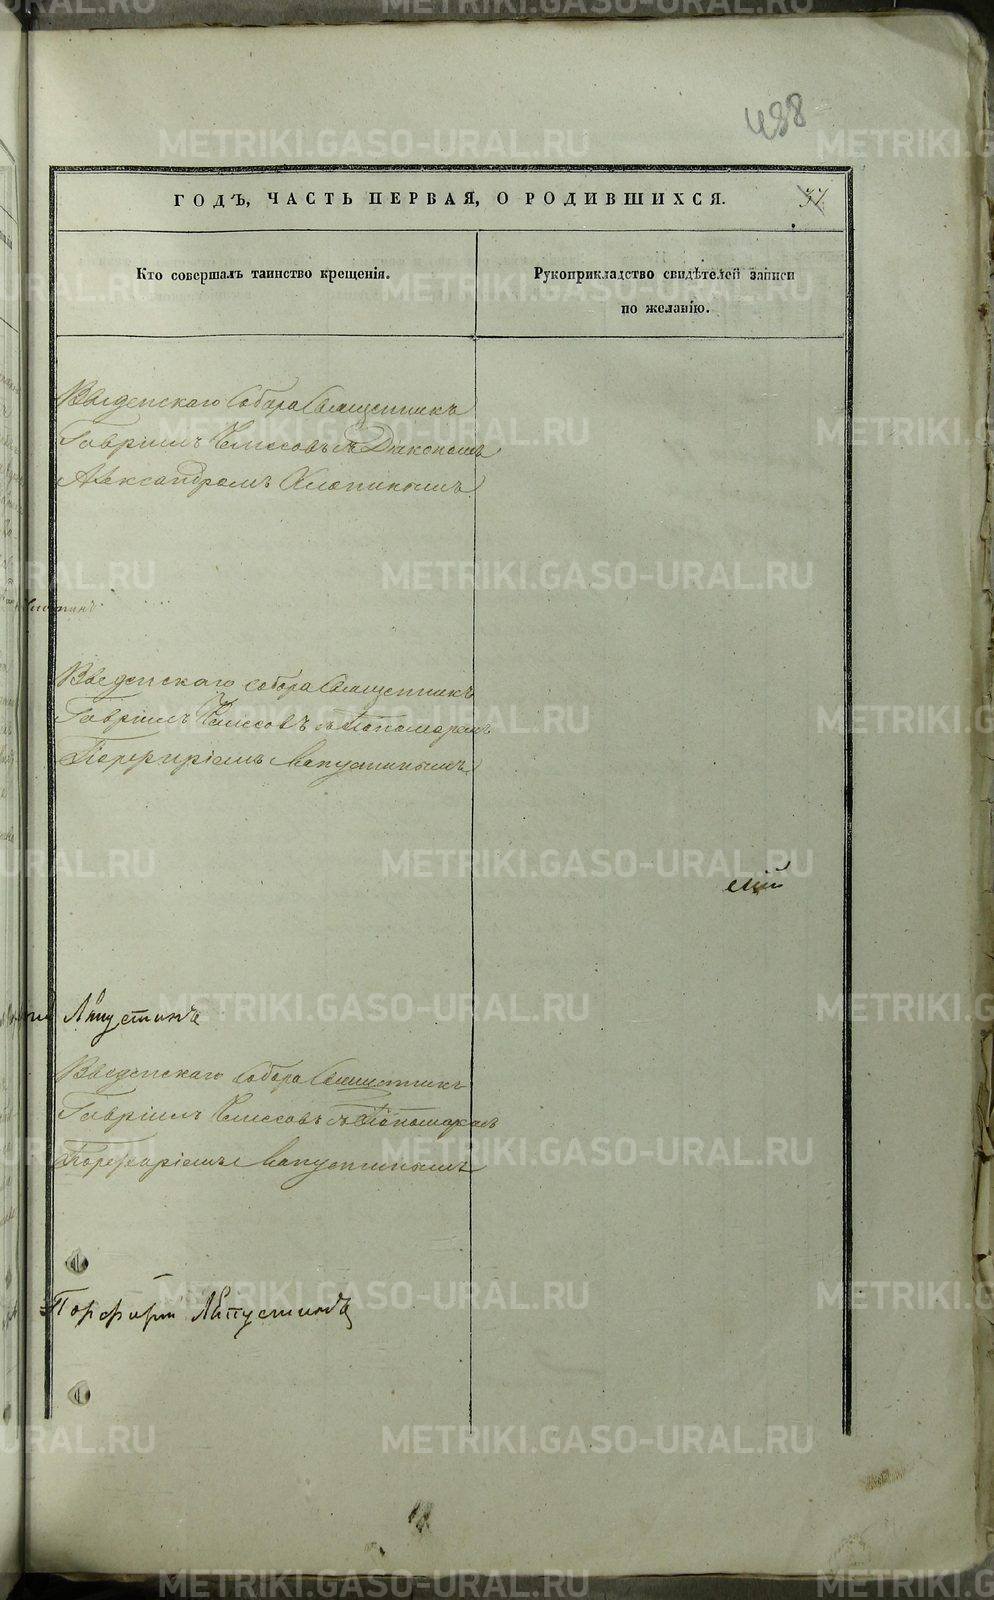 488
ГОДЪ, ЧАСТЬ ПЕРВАЯ, О РОДИВШИХСЯ.
37
Кто совершалъ таинство крещенія.
Рукоприкладство свидѣтелей записи
по желанію.
Введенскаго Собора Священникъ
Гавріилъ съ Діакономъ
Александромъ Хлопинымъ
Введенскаго собора Священникъ
Гавріилъ съ Пономаремъ
Порфиріемъ Лапустинымъ
Лапустинъ
Введенскаго Собора Священникъ
Гавріилъ съ Пономаремъ
Порфиріемъ Лапустинымъ
Порфирій Лапустинъ
METRIKI.GASO-URAL.RU